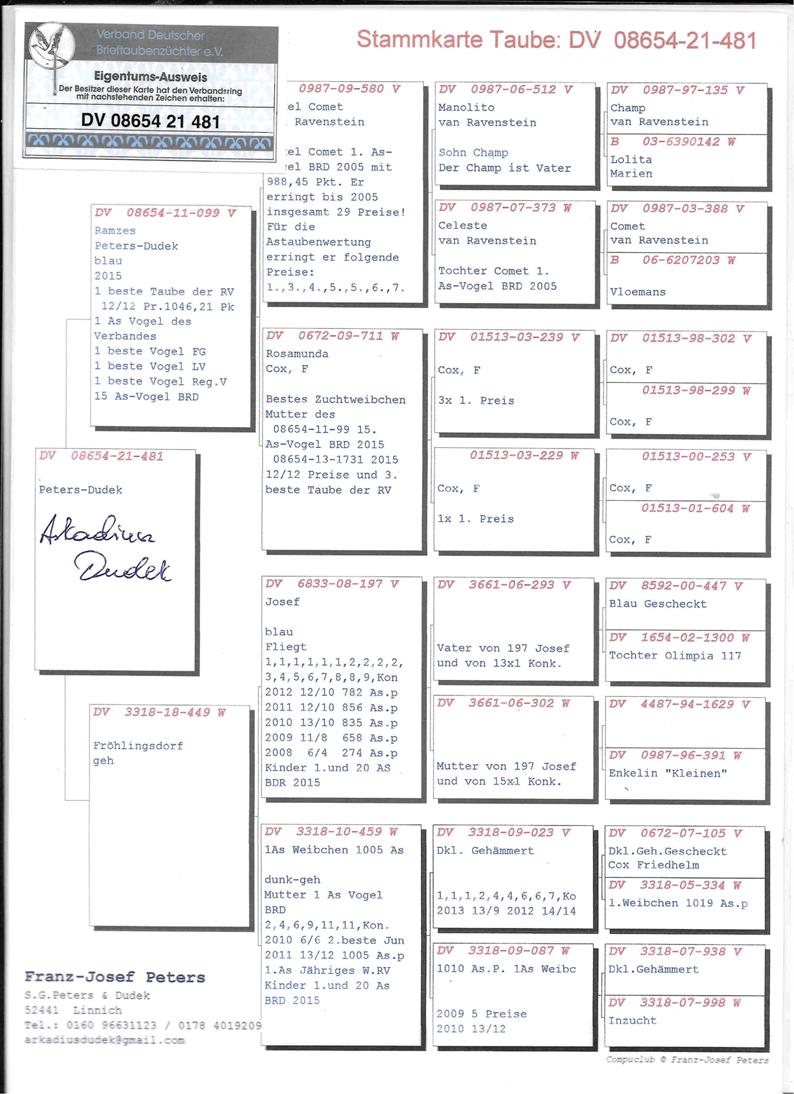 Verband Deutscher
Brieftaubenzüchter e.V.
Eigentums-Ausweis
Der Besitzer dieser Karte hat den Verbandsring
mit nachstehenden Zeichen erhalten:
DV 08654 21 481
Stammkarte Taube: DV 08654-21-481
DV 08654-21-481
Peters-Dudek
Arkadius
Dudek
DV 08654-11-099 V
Ramzes
Peters-Dudek
blau
2015
1 beste Taube der RV
12/12 Pr.1046,21 Pk
1 As Vogel des
Verbandes
1 beste Vogel FG
1 beste Vogel LV
1 beste Vogel Reg.V
15 As-Vogel BRD
DV 3318-18-449 W
Fröhlingsdorf
geh
0987-09-580 V
el Comet
Ravenstein
el Comet 1. As-
el BRD 2005 mit
988,45 Pkt. Er
erringt bis 2005
insgesamt 29 Preise!
Für die
Astaubenwertung
erring er folgende
Preise:
1.,3.,4.,5.,5.,6.,7.
DV 0672-09-711 W
Rosamunda
Cox, F
Bestes Zuchtweibchen
Mutter des
08654-11-99 15.
As-Vogel BRD 2015
08654-13-1731 2015
12/12 Preise und 3.
beste Taube der RV
DV 6833-08-197 V
Josef
blau
Fliegt
1,1,1,1,1,1,2,2,2,2,
3,4,5,6,7,8,8,9,Kon
2012 12/10 782 As.p
2011 12/10 856 As.p
2010 13/10 835 As.p
2009 11/8 658 As.p
2008 6/4 274 As.p
Kinder 1.und 20 As
BDR 2015
DV 3318-10-459 W
1As Weibchen 1005 As
dunk-geh
Mutter 1 As Vogel
BRD
2,4,6,9,11,11,Kon.
2010 6/6 2.beste Jun
2011 13/12 1005 As.p
1.As Jähriges W.RV
Kinder 1.und 20 As
BRD 2015
DV 0987-06-512 V
Manolito
van Ravenstein
Sohn Champ
Der Champ ist Vater
DV 0987-07-373 W
Celeste
van Ravenstein
Tochter Comet 1.
As-Vogel BRD 2005
DV 01513-03-239 V
Cox, F
3x 1. Preis
01513-03-229 W
Cox, F
1x 1. Preis
DV 3661-06-293 V
Vater von 197 Josef
und von 13x1 Konk.
DV 3661-06-302 W
Mutter von 197 Josef
und von 15x1 Konk.
DV 3318-09-023 V
Dkl. Gehämmert
1,1,1,2,4,4,6,6,7,Ko
2013 13/9 2012 14/14
DV 3318-09-087 W
1010 As.P. 1As Weibc
2009 5 Preise
2010 13/12
DV 0987-97-135 V
Champ
van Ravenstein
B 03-6390142 W
Lolita
Marien
DV 0987-03-388 V
Comet
van Ravenstein
B 06-6207203 W
Vloemans
DV 01513-98-302 V
Cox, F
01513-98-299 W
Cox, F
01513-00-253 V
Cox, F
01513-01-604 W
Cox, F
DV 8592-00-447 V
Blau Gescheckt
DV 1654-02-1300 W
Tochter Olimpia 117
DV 4487-94-1629 V
DV 0987-96-391 W
Enkelin "Kleinen"
DV 0672-07-105 V
Dkl.Geh.Gescheckt
Cox Friedhelm
DV 3318-05-334 W
1.Weibchen 1019 As.p
DV 3318-07-938 V
Dkl.Gehämmert
DV 3318-07-998 W
Inzucht
Franz-Josef Peters
S.G.Peters & Dudek
52441 Linnich
Tel.: 0160 96631123 / 0178 4019209
arkadiusdudek@gmail.com
Compuclub © Franz-Josef Peters